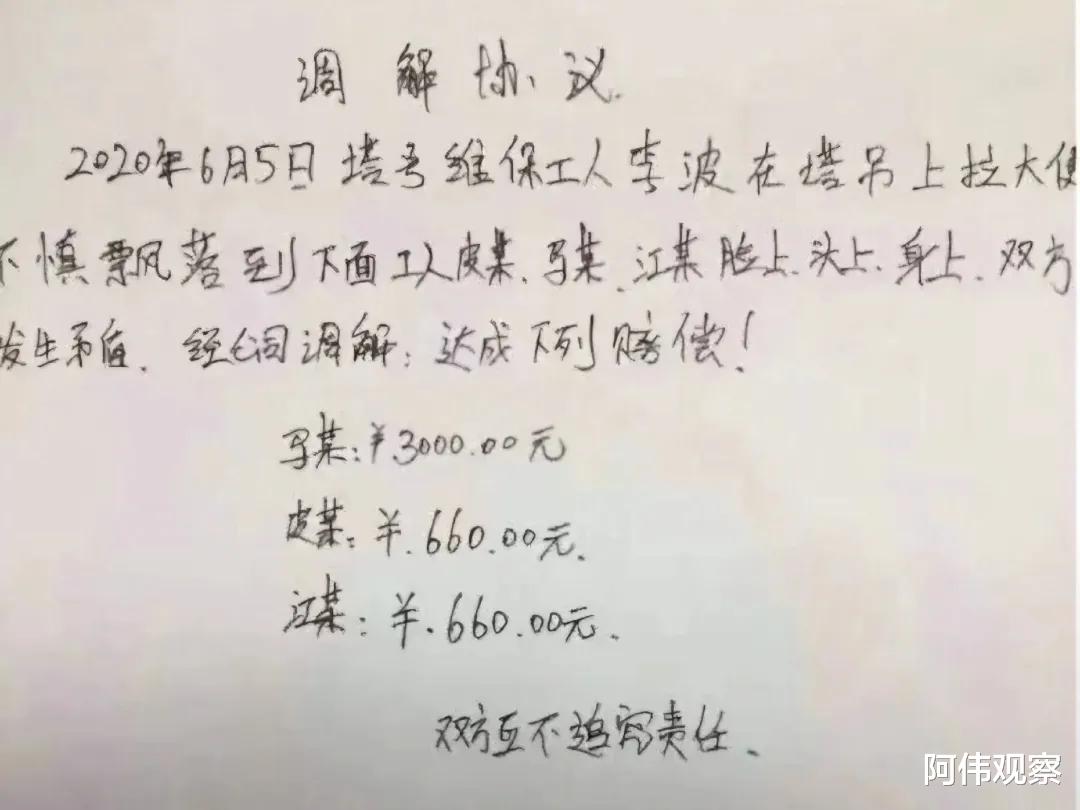 调解协议.
2020年6月5日塔吊维保工人李波在塔吊上拉大便
不慎飘落到下面工人皮某.马某.江某脸上.头上.身上.双方
发生矛盾.经协调解:达成下列赔偿!
马某:¥.3000.00元
皮某:¥.660.00元.
江某:¥.660.00元.
双方互不追究责任.
阿伟观察